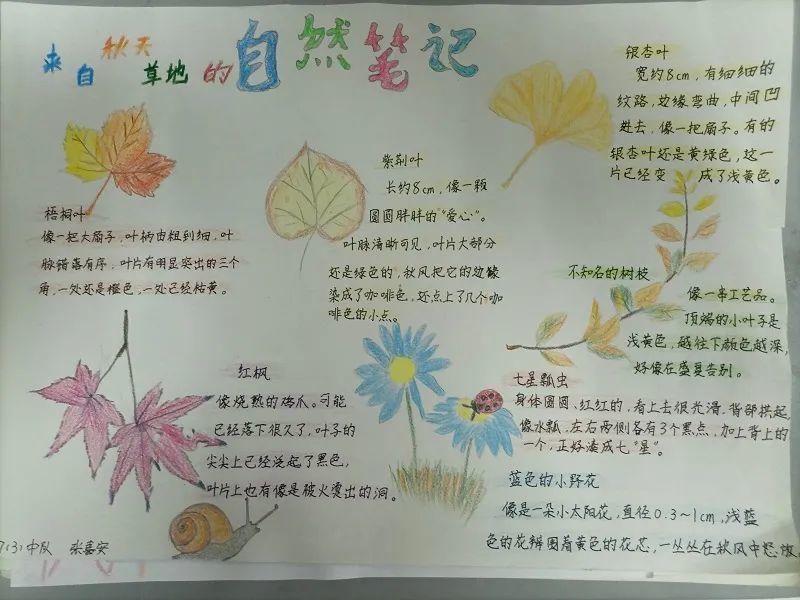 来自秋天草地的自然笔记
梧桐叶
像一把大扇子，叶柄由粗到细，叶
脉错落有序，叶片有明显突出的三个
角，一处还是橙色，一处已经枯黄。
紫荆叶
长约8cm，像一颗
圆圆胖胖的“爱心”。
叶脉清晰可见，叶片大部分
还是绿色的，秋风把它的边缘
染成了咖啡色，还点上了几个咖
啡色的小点。
银杏叶
宽约8cm，有细细的
纹路，边缘弯曲，中间凹
进去，像一把扇子。有的
银杏叶还是黄绿色，这一
片已经变成了浅黄色。
不知名的树枝
像一串工艺品。
顶端的小叶子是
浅黄色，越往下颜色越深，
好像在盛夏告别。
红枫
像烧熟的鸡爪。可能
已经落下很久了，叶子的
尖尖上已经泛起了黑色，
叶片上也有像是被火烫出的洞。
七星瓢虫
身体圆圆、红红的，看上去很光滑，背部拱起
像水瓢，左右两侧各有3个黑点，加上背上的
一个，正好凑成七“星”。
蓝色的小野花
像是一朵小太阳花，直径0.3~1cm，浅蓝
色的花瓣围着黄色的花芯，一丛丛在秋风中怒放。
(3)中队 张嘉安